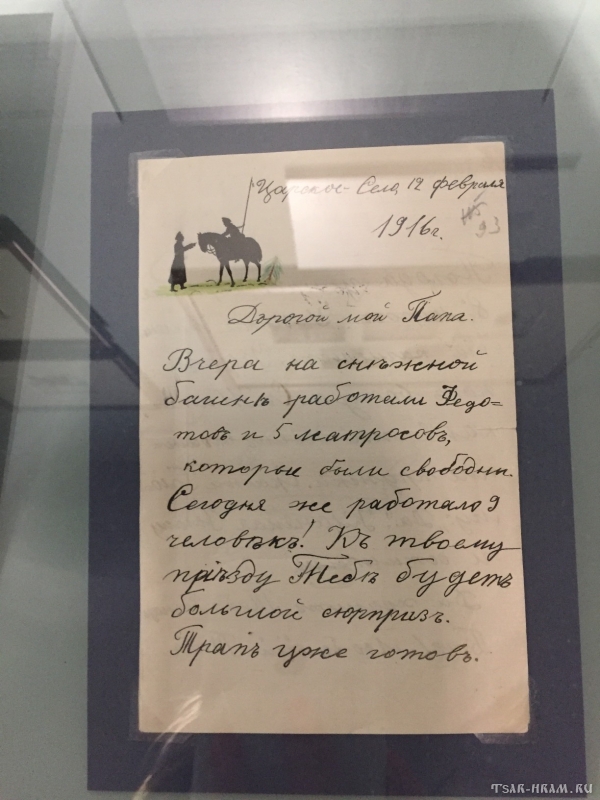 Царское-Село 12 февраля
1916 г.
№5
93
Дорогой мой Папа.
Вчера на снѣжной
башнѣ работали Федо-
товъ и 5 матросовъ,
которые были свободны.
Сегодня же работало 9
человѣкъ! Къ твоему
приѣзду Тебѣ будетъ
большой сюрпризъ.
Трапъ уже готовъ.
TSAR-HRAM.RU